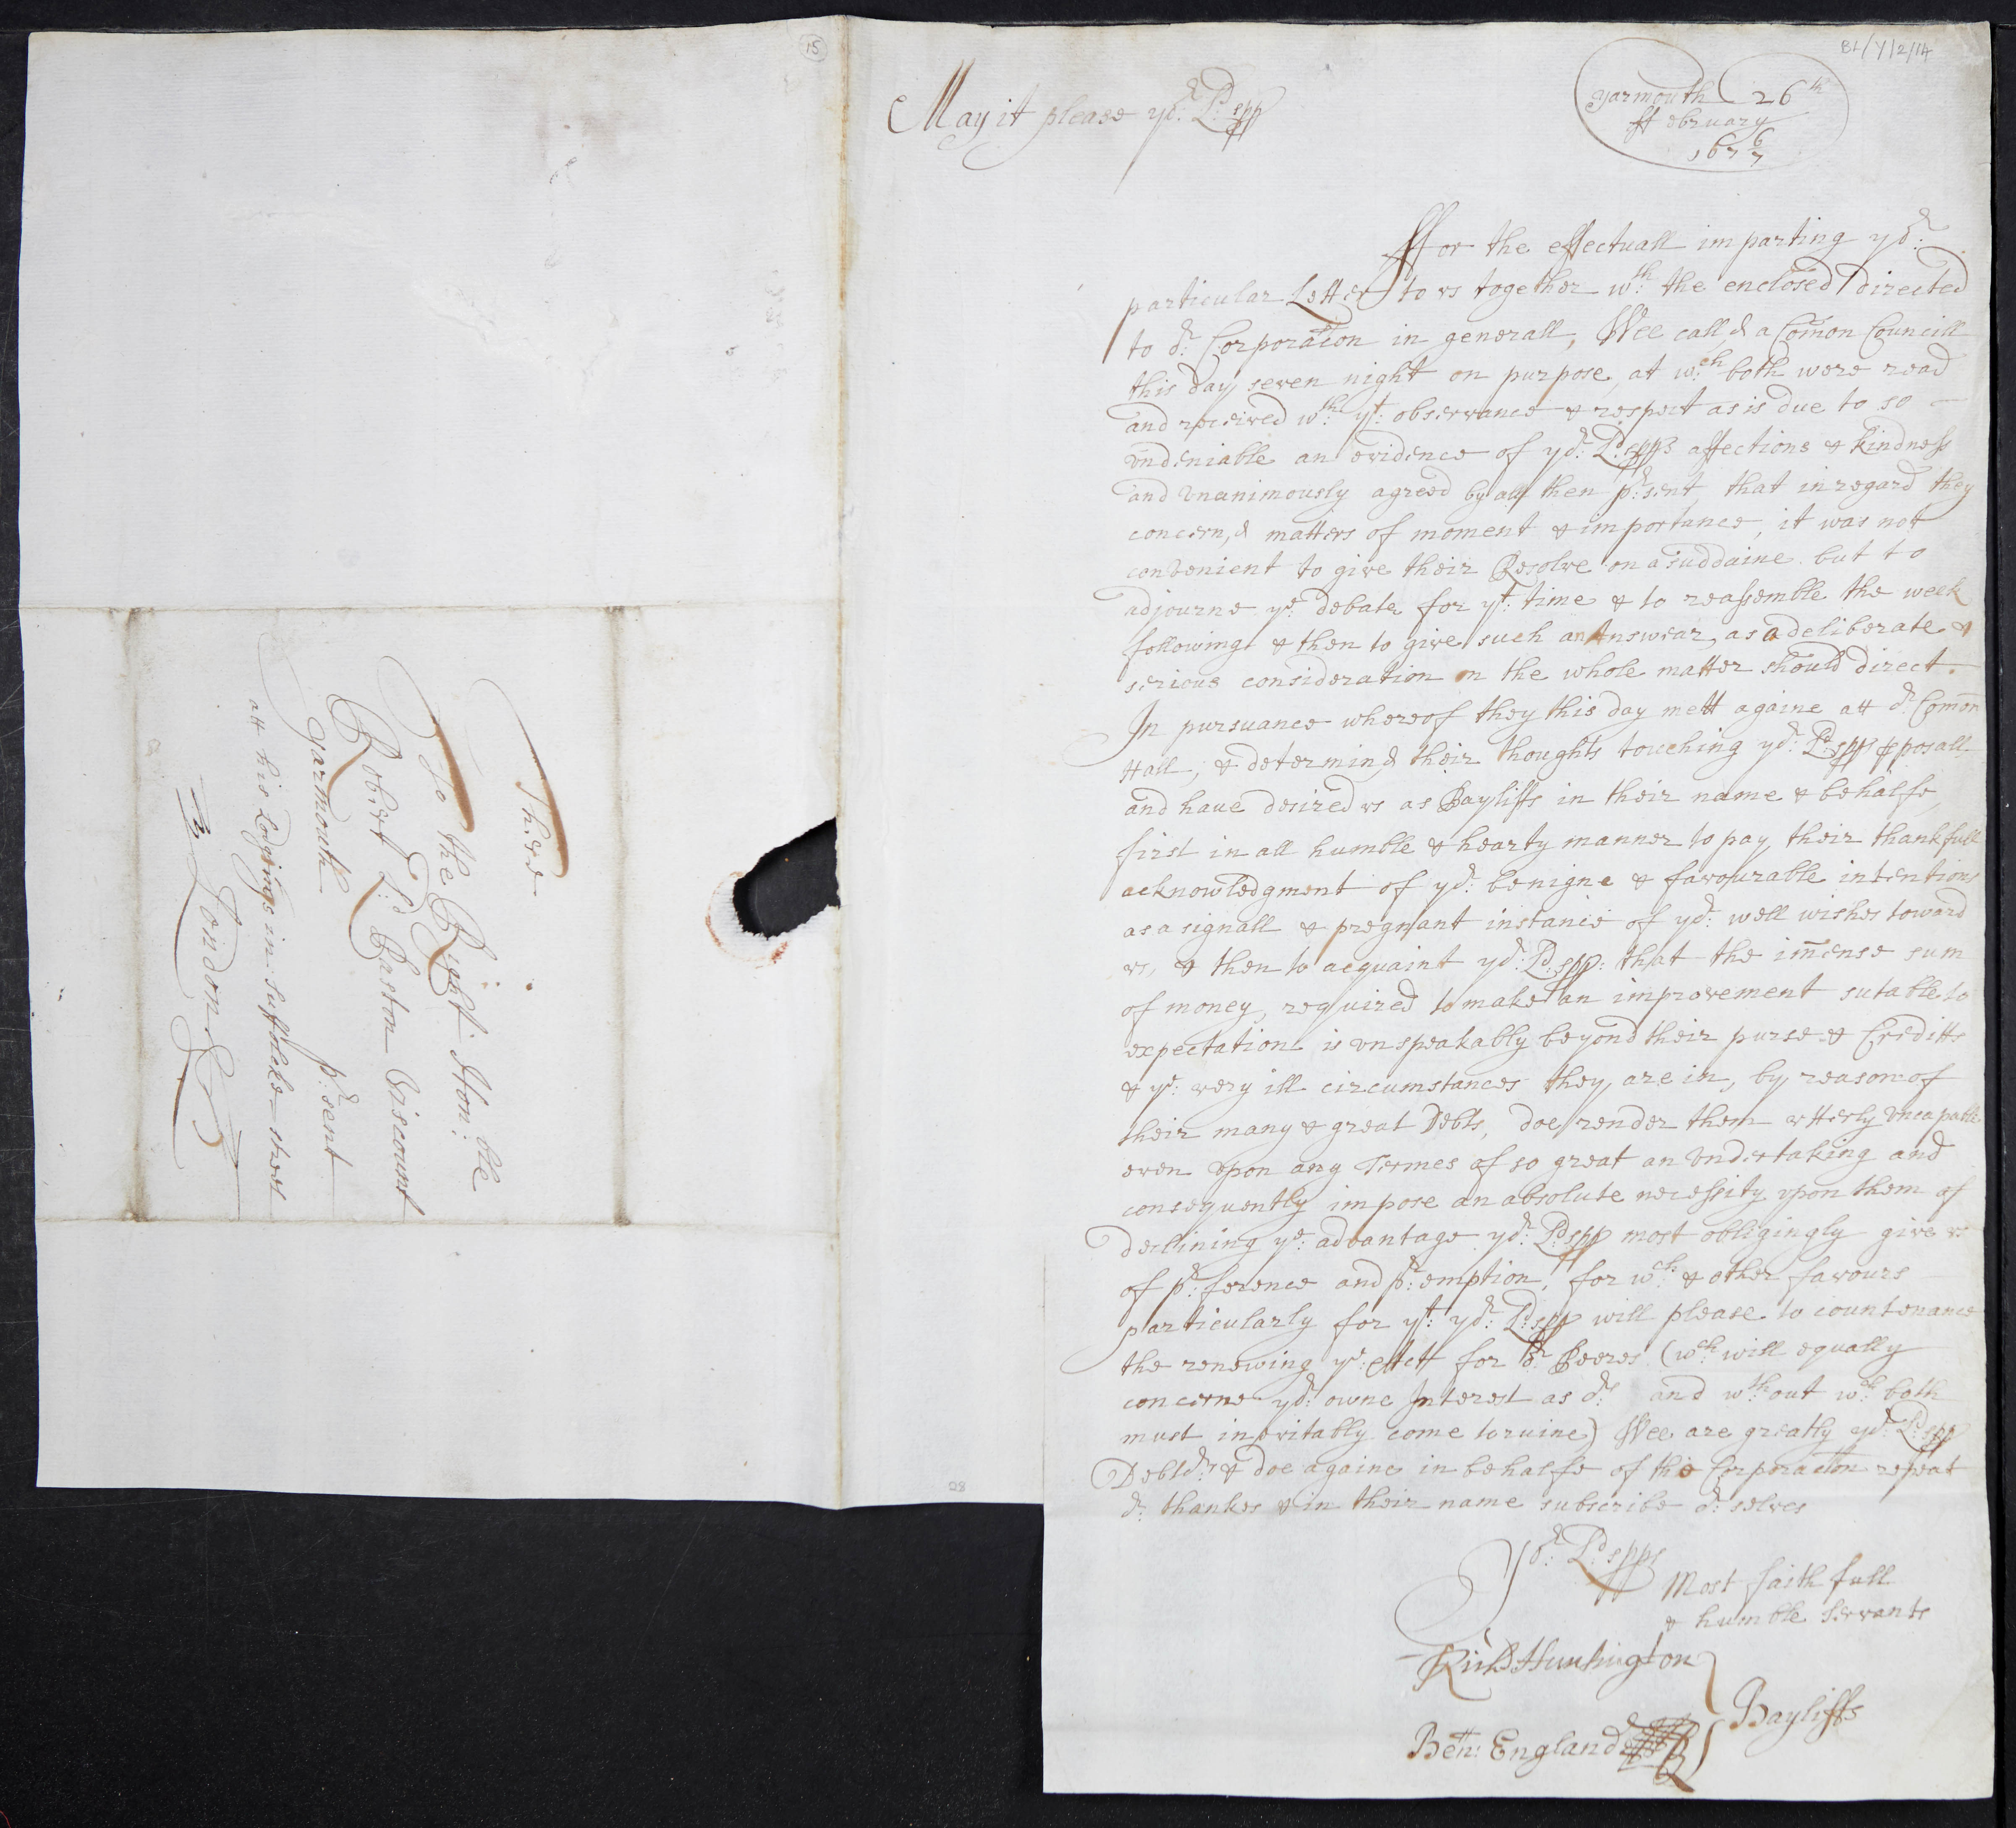 15
BL/Y/2/14
Yarmouth 26th
ffebruary
167 6/7
May it please yor: Ldspp
ffor the effectuall imparting yor:
particular Letter to vs together wth: the enclosed directed
to or: Corporacon in generall, Wee call,d a Comon Councill
this day seven night on purpose, at wch: both were read
and received wth: yt: observance & respect as is due to so –
vndeniable an evidence of yor: Ldspps affections & kindness
and vnanimously agreed by all then pr:sent, that in regard they
concern,d matters of moment & importance, it was not
convenient to give their Resolve on a suddaine but to
adjourne ye: debate for yt: time & to reassemble the week
following & then to give such an Answear, as a deliberate &
serious consideration on the whole matter should direct.
In pursuance whereof they this day mett againe att or: Comon
Hall, & determin,d their thoughts touching yor: Ldspps pposall
and have desired vs as Bayliffs in their name & behalfe
first in all humble & hearty manner to pay their thankfull
acknowledgment of yor: benigne & favourable intentions
as a signall & pregnant instance of yor: well wishes toward
vs, & then to acquaint yor: Ldspp: that the imense sum
of money, required to make an improvement sutable to
expectation is vnspeakably beyond their purse & Creditts
& ye: very ill circumstances they are in, by reason of
their many & great Debts, doe render them vtterly vncapable
even vpon any Termes of so great an vndertaking and
consequently impose an absolute necessity vpon them of
declining ye: advantage yor: Ldspp most obligingly give vs
of pr:ference and pr:emption, for wch: & other favours
particularly for yt: yor: Ldspp will please to countenance
the renewing ye: Act for or: Peeres (wch: will equally
concerne yor: owne Interest as ors: and wth:out wch: both
must inevitably come to ruine) Wee are greatly yor: Ldspp
Debtors: & doe againe in behalfe of the Corporacon repeat
or: thankes & in their name subscribe or: selves
Yor: Ldspps
Most faithfull
& humble servants
Rich Huntington
Bayliffs
Ben: England
28
These
To the Right Hon:ble
Robert Ld: Paston Viscount
Yarmouth pr:sent
att his Lodgings in Suffolke-street
London